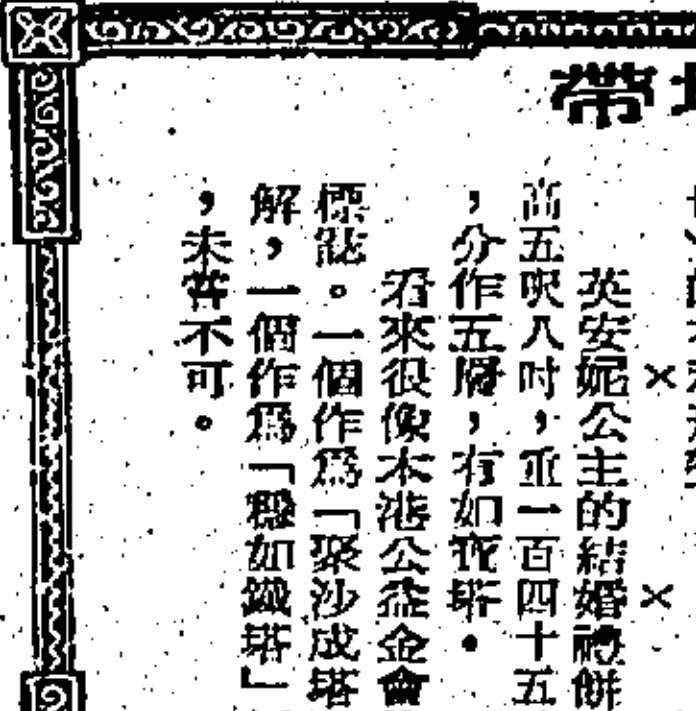 帶
英安妮公主的結婚禮餅
高五呎八吋,重一百四十五
,分作五層,有如寶塔。
看來很像本港公益金會
標誌。一個作爲「聚沙成塔
解,一個作爲「穩如鐵塔」
,未嘗不可。